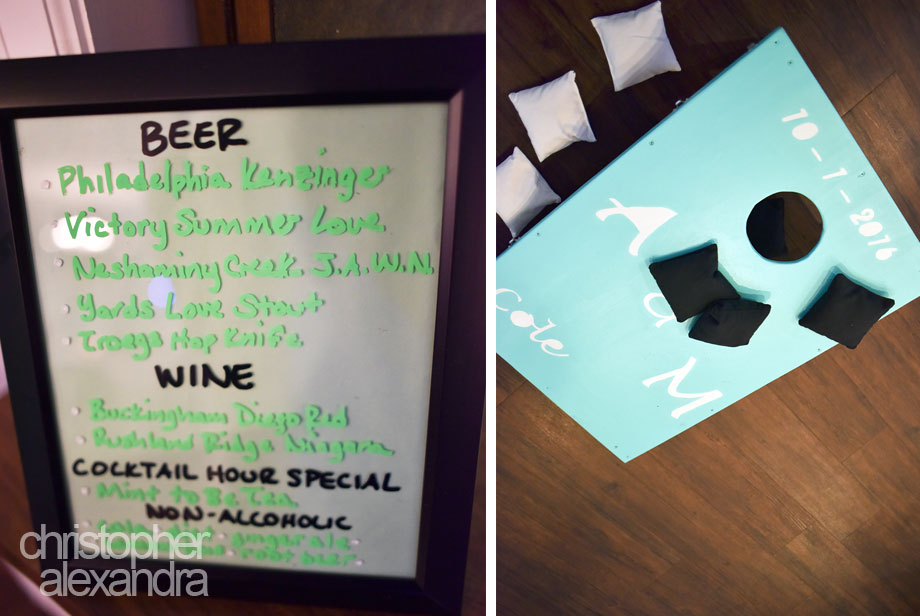 BEER
Philadelphia Kenzinger
Victory Summer Love
Neshaminy Creek J.A.W.N.
Yards Love Stout
Troegs Hop Knife
WINE
Buckingham Diego Red
Rushland Ridge Niagara
COCKTAIL HOUR SPECIAL
Mint to Be Tea
NON-ALCOHOLIC
ginger ale
root beer
christopher
alexandra
10-1-2016
A
&
M
Cole